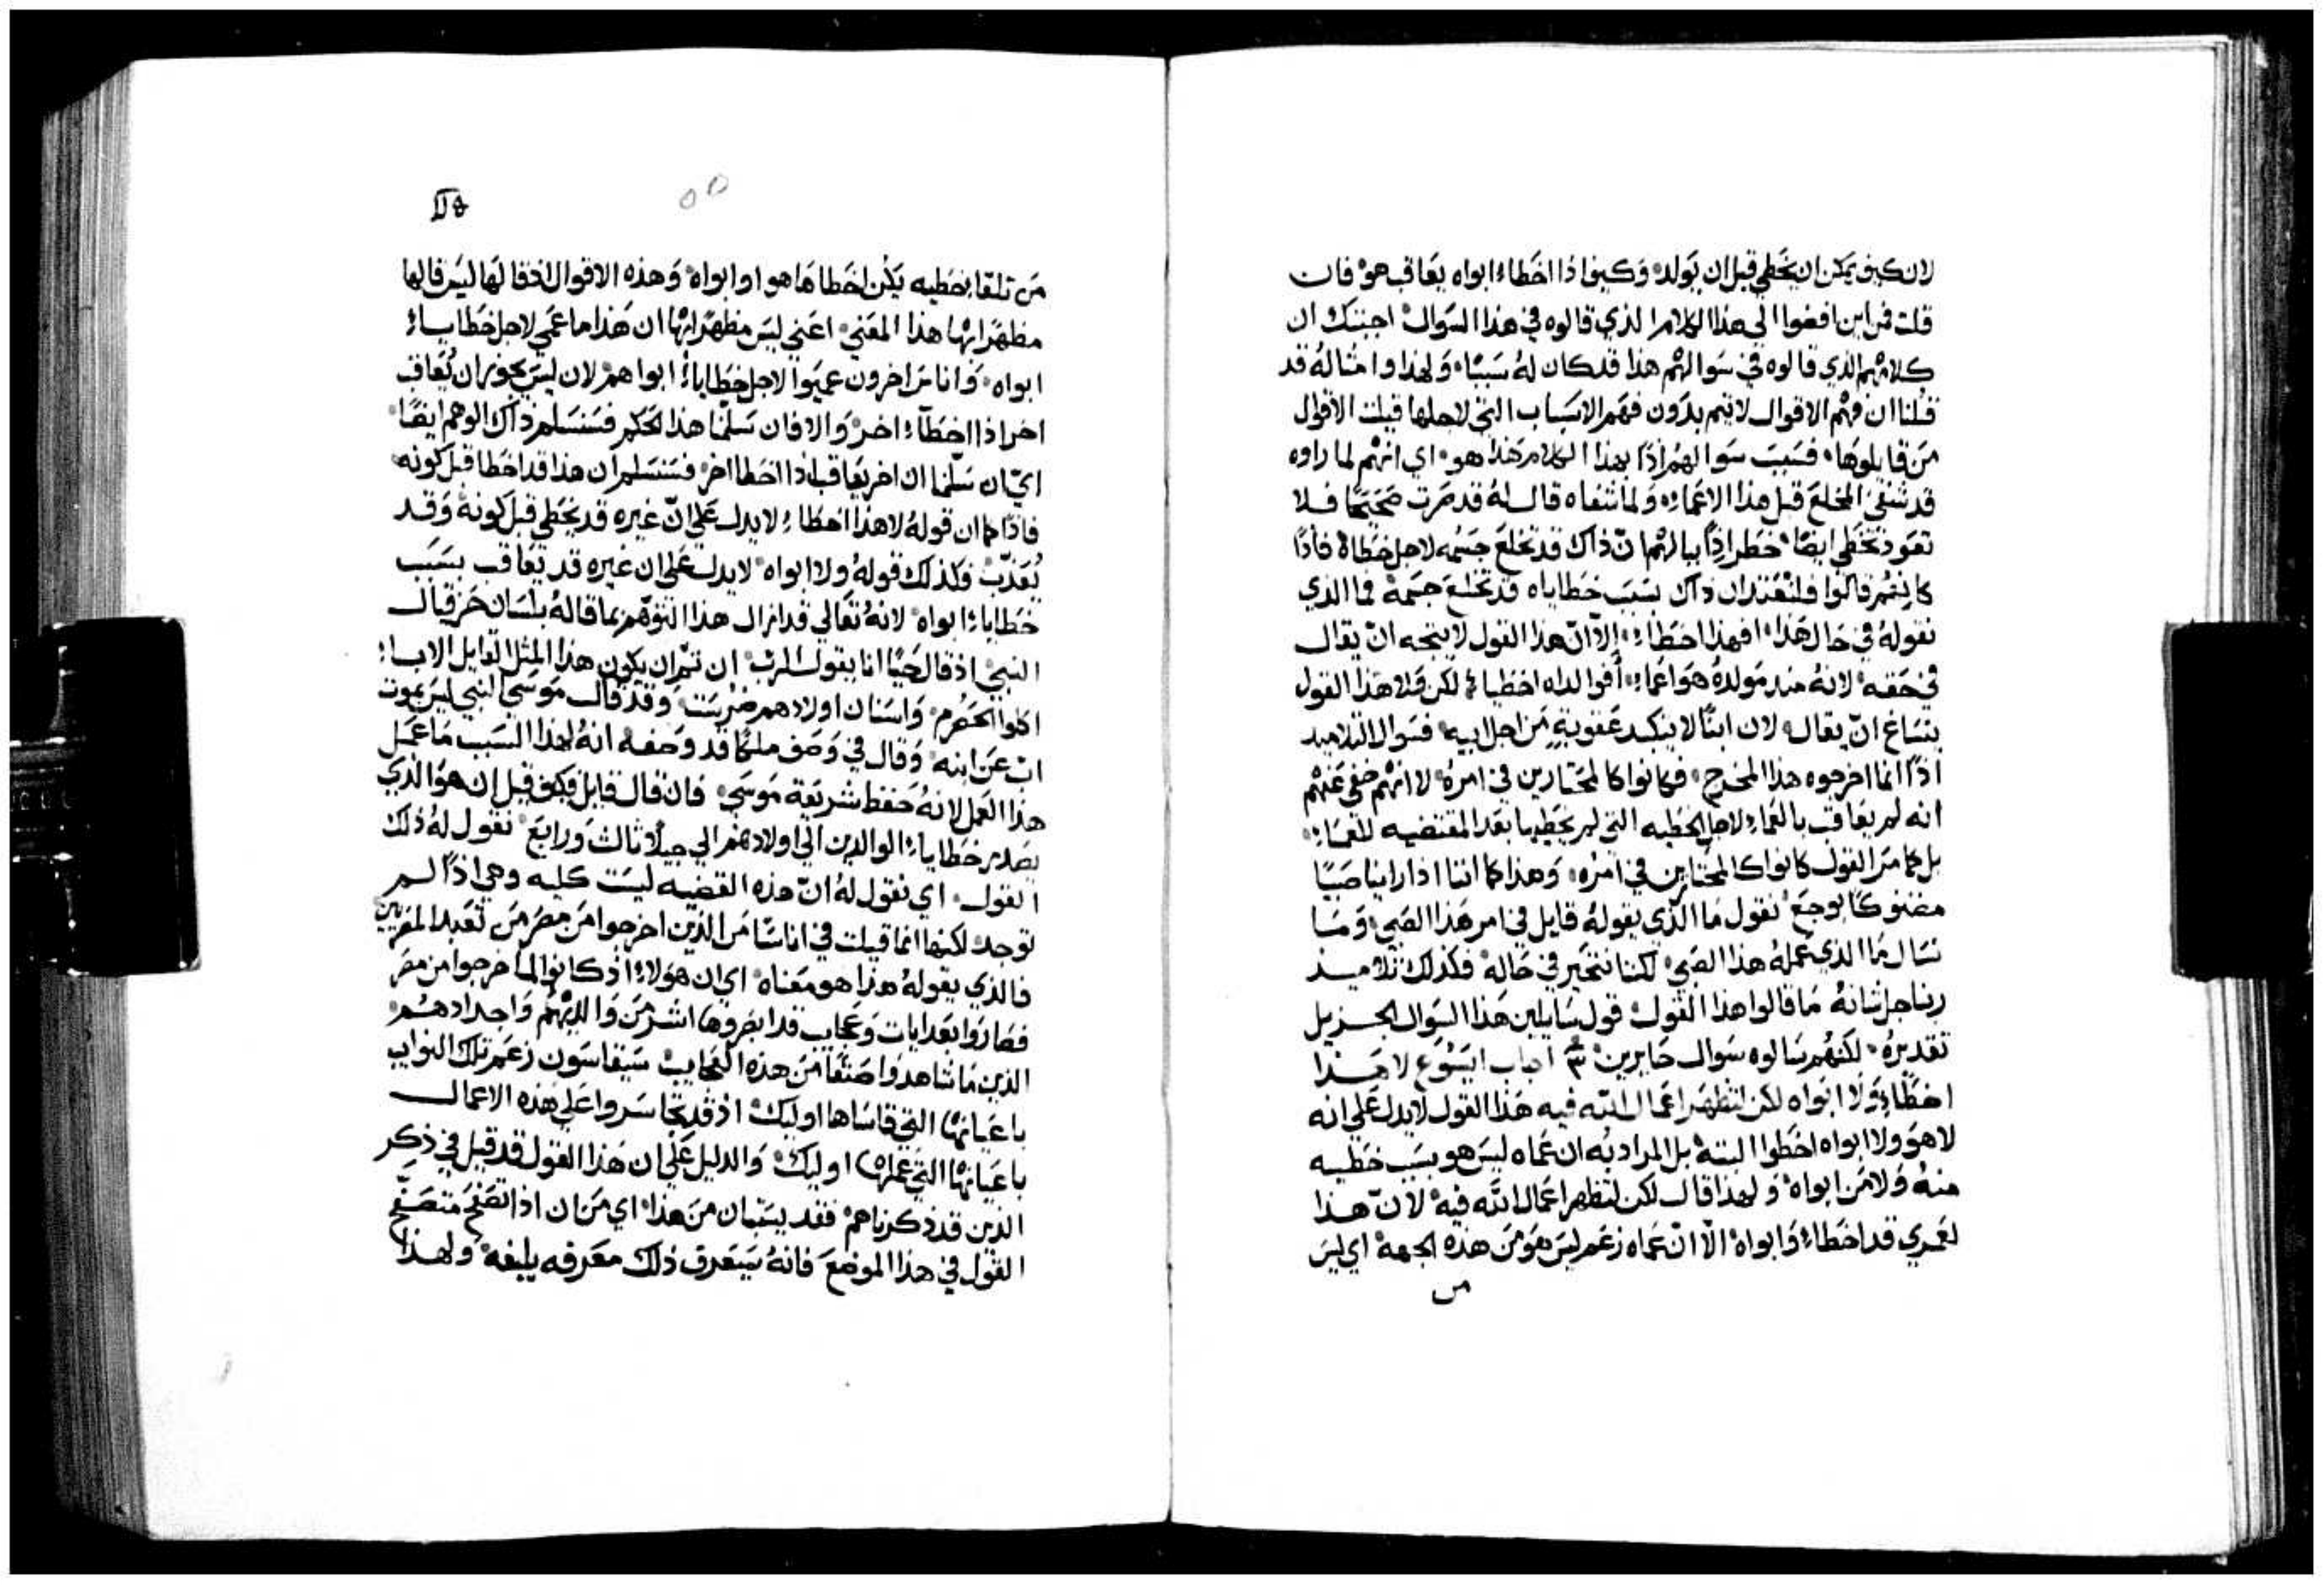 لان كيف يمكن ان يخطي قبل ان يولد وكيف اذا اخطاء ابواه يعاقب هو فان
قلت فمن اين افضوا الي هذا الكلام الذي قالوه في هذا السوال اجبتك ان
كلامهم الذي قالوه في سوالهم هذا قد كان لهُ سببًا ولهذا وامثالهُ قد
قلنا ان فهم الاقوال لا يتم بدون فهم الاسباب التي لاجلها قيلت الاقوال
من قايلوها فسبب سوالهم اذًا بهذا الكلام هذا هو اي انهم لما راوه
قد شفي المخلع قبل هذا الاعماء ولما شفاه قال لهُ قد صرت صحيحًا فلا
تعود تخطي ايضًا خطر اذًا ببالهم انّ ذاك قد تخلع جسمه لاجل خطاهُ فاذًا
كانهم قالوا فلنعتقد ان ذاك بسبب خطاياه قد تخلع جسمهُ فما الذي
نقولهُ في حال هذا افهذا اخطاء الّا انّ هذا القول لا يتجه ان يقال
في حقه لانهُ منذ مولدهُ هو اعماء أفوالداه اخطياء لكن ولا هذا القول
ينساغ ان يقال لان ابنًا لا يتكبد عقوبةٍ من اجل ابيه فسوال التلاميد
اذًا انما اخرجوه هذا المخرج فكانوا كالمحتارين في امرهُ لا انهم خفي عنهم
انه لم يعاقب بالعماء لاجل الخطيه التي لم يخطيها بعد المقتضيه للعماء
بل كما مر القول كانوا كالمحتارين في امرُه وهذا كما اننا اذا راينا صبيًا
مضنوكًا بوجع نقول ما الذي يقولهُ قايل في امر هذا الصبي وما
نسال ما الذي عملهُ هذا الصبي لكنا نتحير في حالهُ فكذلك تلاميذ
ربنا جل شانهُ ما قالوا هذا القول قول سايلين هذا السوال الجزيل
تقديرهُ لكنهم سالوه سوال حايرين ٣ اجاب ايسوع لا هذا
اخطاء ولا ابواه لكن لتظهر اعمال الله فيه هذا القول لا يدل علي انه
لا هو ولا ابواه اخطوا البتة بل المراد به ان عماه ليس هو بسبب خطيه
منهُ ولا من ابواه ولهذا قال لكن لتظهر اعمال الله فيه لانّ هذا
لعمري قد اخطاء وابواه الّا انّ عماه زعم ليس هو من هذه الجهة اي ليس
من
من تلقا خطيه يكن اخطاها هو او ابواه وهذه الاقوال اذ قالها ليس قالها
مظهرًا بها هذا المعني اعني ليس مظهرًا بها ان هذا ما عمي لاجل خطاياء
ابواه واناس اخرون عميوا لاجل خطاياء ابواهم لان ليس يجوز ان يُعاقب
اخر اذا اخطاء اخر والا فان سلمنا هذا الحكم فسنسلم ذاك الوهم ايضًا
اي ان سلمنا ان اخر يعاقب اذا اخطا اخر فسنسلم ان هذا قد اخطا قبل كونه
فاذًا كما ان قولهُ لا هذا اخطاء لا يدل علي انّ غيره قد يخطي قبل كونه وقد
يُعذّب فكذلك قولهُ ولا ابواه لا يدل علي ان غيره قد يعاقب بسبب
خطاياء ابواه لانهُ تعالي قد ازال هذا التوهم بما قالهُ بلسان حزقيال
النبي اذ قال حيًا انا يقول الرب ان تم ان يكون هذا المثل القايل الاباء
اكلوا الحصرم واسنان اولادهم ضرست وقد قال موسي النبي ليس يموت
اب عن ابنه وقال في وصف ملكًا قد وصفه انهُ لهذا السبب ما عمل
هذا العمل لانهُ حفظ شريعة موسي فان قال قايل فكيف قيل ان هو الذي
يصدر خطاياء الوالدين الي اولادهم الي جيلًا ثالث ورابع نقول لهُ ذلك
القول اي نقول لهُ انّ هذه القضيه ليست كليه وهي اذًا لم
توجد لكنها انما قيلت في اناسًا من الذين اخرجوا من مصر من تعبد المصريين
فالذي يقولهُ هذا هو معناه اي ان هولاء اذ كانوا لما خرجوا من مصر
فصاروا بعد ايات وعجايب قد ابصروها اشر من والديهم واجدادهم
الذين ما شاهدوا صنفًا من هذه العجايب سيقاسون زعم تلك النوايب
باعيانها التي قاساها اوليك اذ قد تجاسروا علي هذه الاعمال
باعيانها التي عملها اوليك والدليل علي ان هذا القول قد قيل في ذكر
الذين قد ذكرناهم فقد يستبان من هذا اي من ان اذا تصفح متصفّح
القول في هذا الموضع فانهُ يتعرف ذلك معرفه بليغه ولهذا